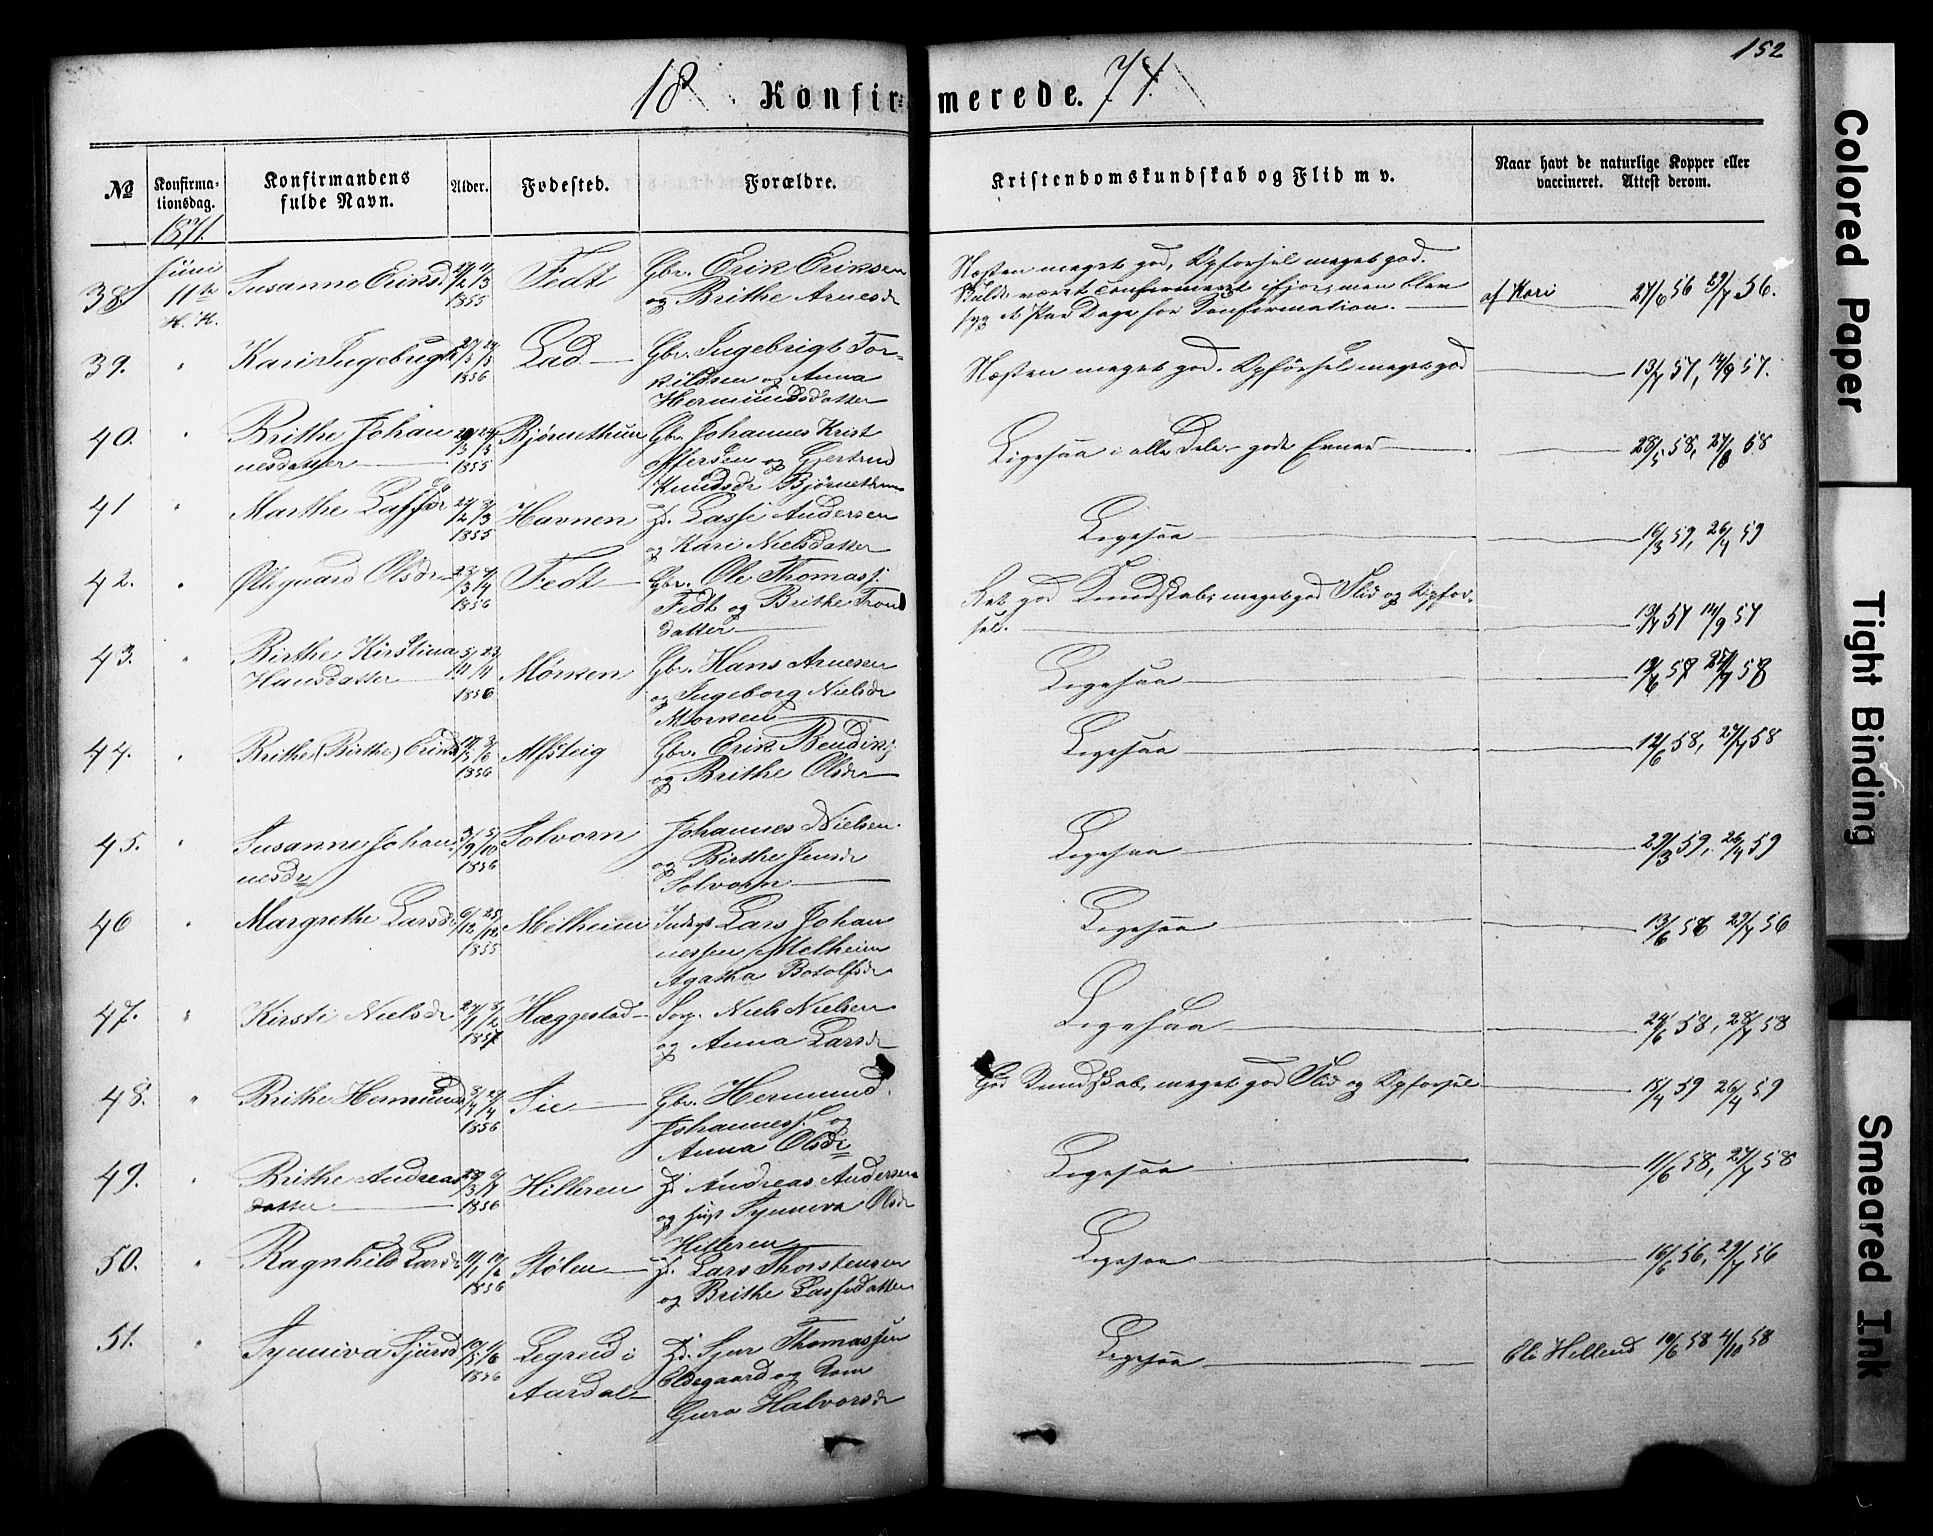 152
18 Konfirmerede. 71.
№ Konfirmationsdag. Konfirmandens fulde Navn. Alder. Fødested. Forældre. Kristendomskundskab og Flid m v. Naar havt de naturlige Kopper eller vaccineret. Attest derom.
1871.
38. Juni 11te H. K. Susanne Eriksd 1855 Fedt Gbr. Erik Eriksen
og Brithe Arnesdr
Næsten meget god, Opførsel meget god.
Skulde været confirmeret ifjor, men blev
syg et Par Dage før Confirmation. af Kari 27/6 56 29/7 56.
39. " Kari Ingebrigtd 1856 Lad Gbr. Ingebrigt Tor-
kildsen og Anna
Hermundsdatter
Næsten meget god. Opførsel meget god 13/7 57, 14/9 57.
40. " Brithe Johan
nesdatter 1855 Bjørnethun Gbr. Johannes Krist
offersen og Gjertrud
Knudsdr Bjørnethun
Ligesaa i alle Dele - gode Evner 28/5 58, 27/6 58
41 " Marthe Lassedr 1855 Havnen H. Lasse Andersen
og Kari Nielsdatter
Ligesaa 16/3 59, 26/4 59
42. " Ølegaard Olsdr 23/3 4/4 1856 Fedt Gbr. Ole Thomass.
Fedt og Brithe Trond
datter
Ret god Kundskab, meget god Flid og Opfør-
sel. 13/7 57 14/9 57
43. " Birthe Kirstina
Hansdatter 1856 Mørken Gbr. Hans Arnesen
og Ingeborg Nielsdr
Morken
Ligesaa 12/6 58 27/7 58
44. " Brithe (Birthe) Eriksd 1856 Alfsteig Gbr. Erik Bendiks
og Brithe Olsdr
Ligesaa 12/6 58, 27/7 58
45. " Susanne Johan
nesdr 3/9 5/10 1856 Solvorn Johannes Nielsen
og Birthe Jensdr
Solvorn
Ligesaa 23/3 59, 26/4 59
46 " Margrethe Larsdr 6/12 25/12 1855 Melheim Inderst Lars Johan
nessen Melheim
Agatha Botolfsdr
Ligesaa 13/6 56 29/7 56
47. " Kirsti Nielsdr 27/1 8/2 1857 Hæggestad Sorp. Niels Nielsen
og Anna Larsdr
Ligesaa 24/6 58, 28/7 58
48. " Brithe Hermunds 1856 Fie Gbr. Hermund
Johanness. og
Anna Olsdr
God Kundskab, meget god Flid og Opførsel 15/4 59 26/4 59
49. " Brithe Andreas
datter 1856 Hilleren H Andreas Andersen
og Synneva Olsdr
Hilleren
Ligesaa 11/6 58, 27/7 58
50. " Ragnhild Larsdr 1856 Stølen H. Lars Thorstensen
og Brithe Lassedatter
Ligesaa 16/6 56, 29/7 56
51. " Synneva Sjursd 1856 Legreid i
Aardal H. Sjur Thomassen
Oldegaard og Kone
Guro Halvorsdr
Ligesaa Eli Hellend 10/6 58 4/10 58
Colored Paper
Tight Binding
Smeared Ink